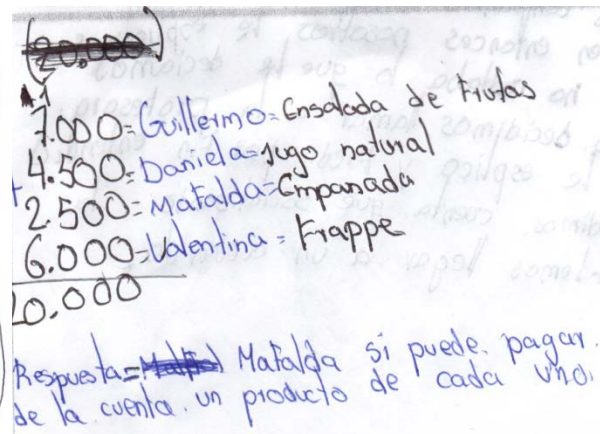 20.000
7.000=Guillermo=Ensalada de frutas
4.500=Daniela=jugo natural
+ 2.500=Mafalda=Empanada
6.000=Valentina=Frappe
20.000
Respuesta= Mafalda si puede. pagar.
de la cuenta. un producto de cada uno.